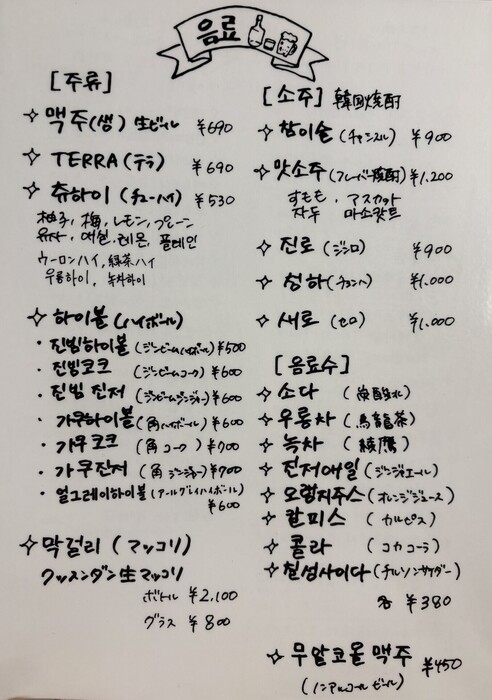 음료
[주류]
맥주(생) 生ビール ¥690
TERRA(テラ) ¥690
츄하이(チューハイ) ¥530
柚子, 梅, レモン, プレーン
유자, 매실, 레몬, 플레인
ウーロンハイ, 緑茶ハイ
우롱하이, 녹차하이
하이볼(ハイボール)
・진빔하이볼(ジンビームハイボール)¥500
・진빔코크(ジンビームコーク)¥600
・진빔진저(ジンビームジンジャー)¥600
・가쿠하이볼(角ハイボール)¥600
・가쿠코크(角コーク)¥700
・가쿠진저(角ジンジャー)¥700
・얼그레이하이볼(アールグレイハイボール)
¥600
막걸리(マッコリ)
クッスンダン生マッコリ
ボトル ¥2,100
グラス ¥800
[소주] 韓国焼酎
참이슬(チャミスル) ¥900
맛소주(フレーバー焼酎)¥1,200
すもも, アスカット
자두 마스캇트
진로(ジンロ) ¥900
청하(チョンハ) ¥1,000
새로(セロ) ¥1,000
[음료수]
소다(炭酸水)
우롱차(烏龍茶)
녹차(綾鷹)
진저에일(ジンジャエール)
오렌지쥬스(オレンジジュース)
칼피스(カルピス)
콜라(コカコーラ)
칠성사이다(チルソンサイダー)
各 ¥380
무알코올 맥주 ¥450
(ノンアルコールビール)